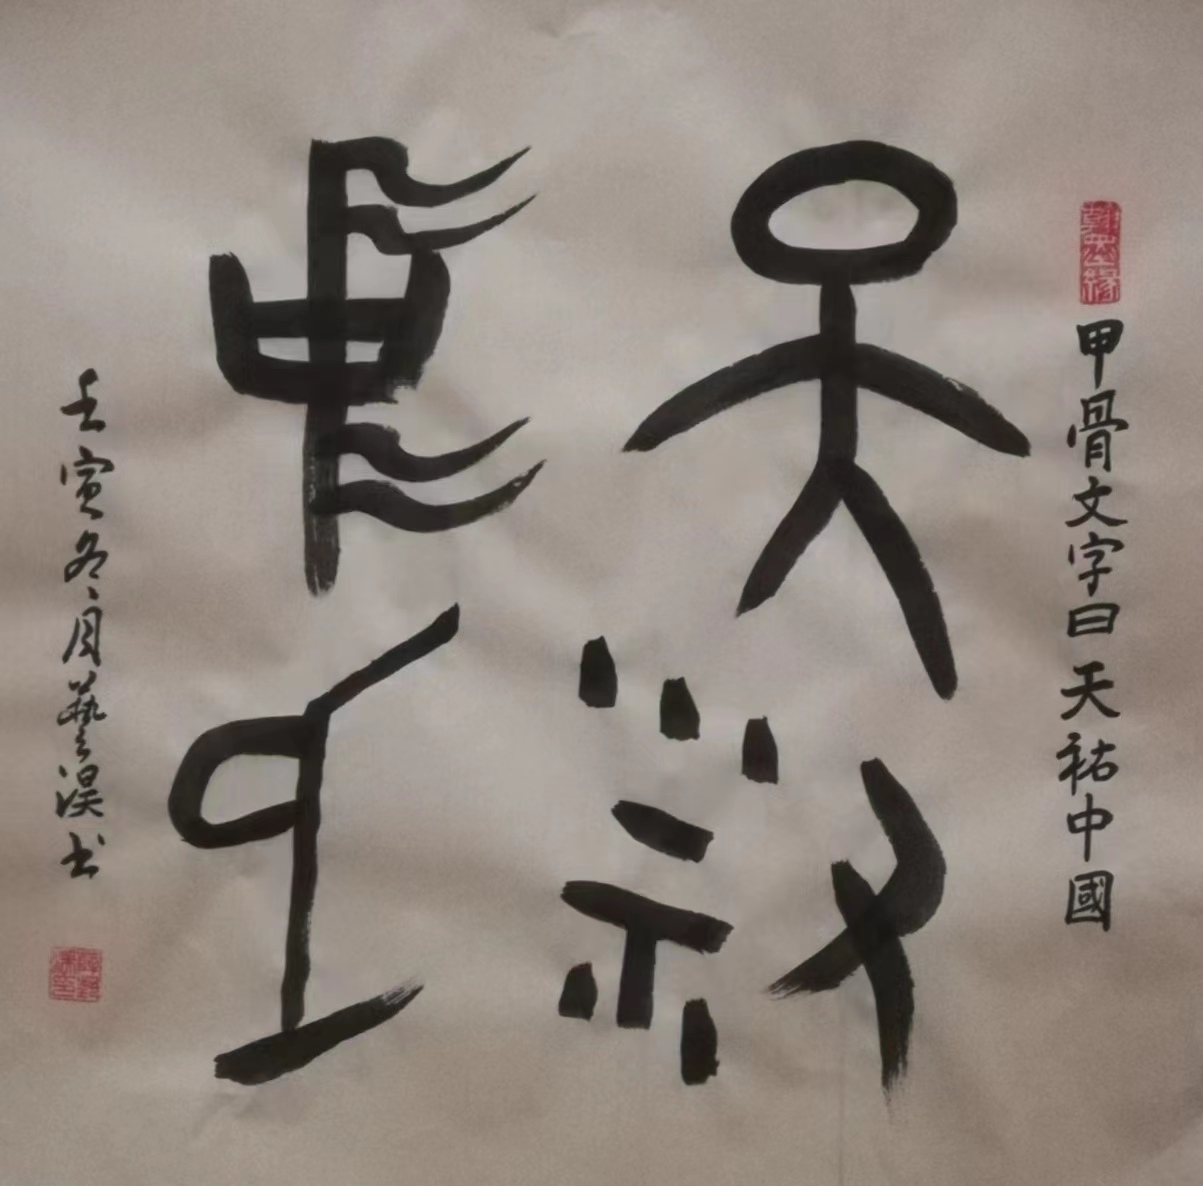 甲骨文字曰天祐中國
天祐
中國
壬寅冬月藝淏书